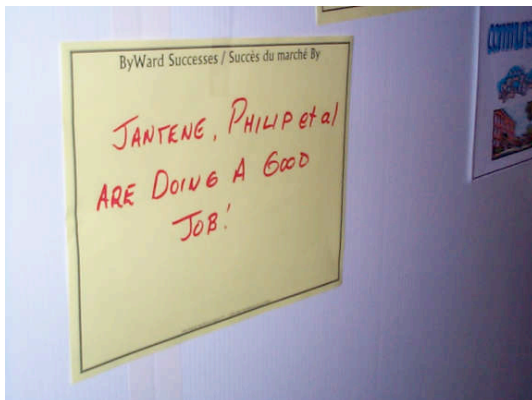 ByWard Successes / Succès du marché By
JANTENE, PHILIP et al
ARE DOING A GOOD
JOB!